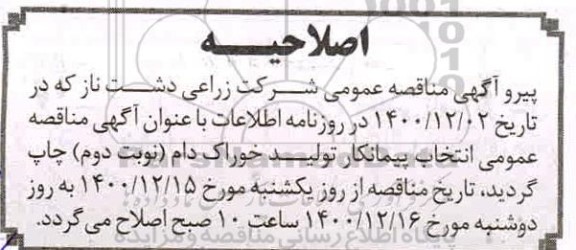 اصلاحیـــه
پیرو آگهی مناقصه عمومی شـــرکت زراعی دشـــت ناز که در
تاریخ ۱۴۰۰/۱۲/۰۲ در روزنامه اطلاعات با عنوان آگهی مناقصه
عمومی انتخاب پیمانکار تولیـــد خوراک دام (نوبت دوم) چاپ
گردید، تاریخ مناقصه از روز یکشنبه مورخ ۱۴۰۰/۱۲/۱۵ به روز
دوشنبه مورخ ۱۴۰۰/۱۲/۱۶ ساعت ۱۰ صبح اصلاح می گردد.
پایگاه اطلاع رسانی مناقصه و مزایده